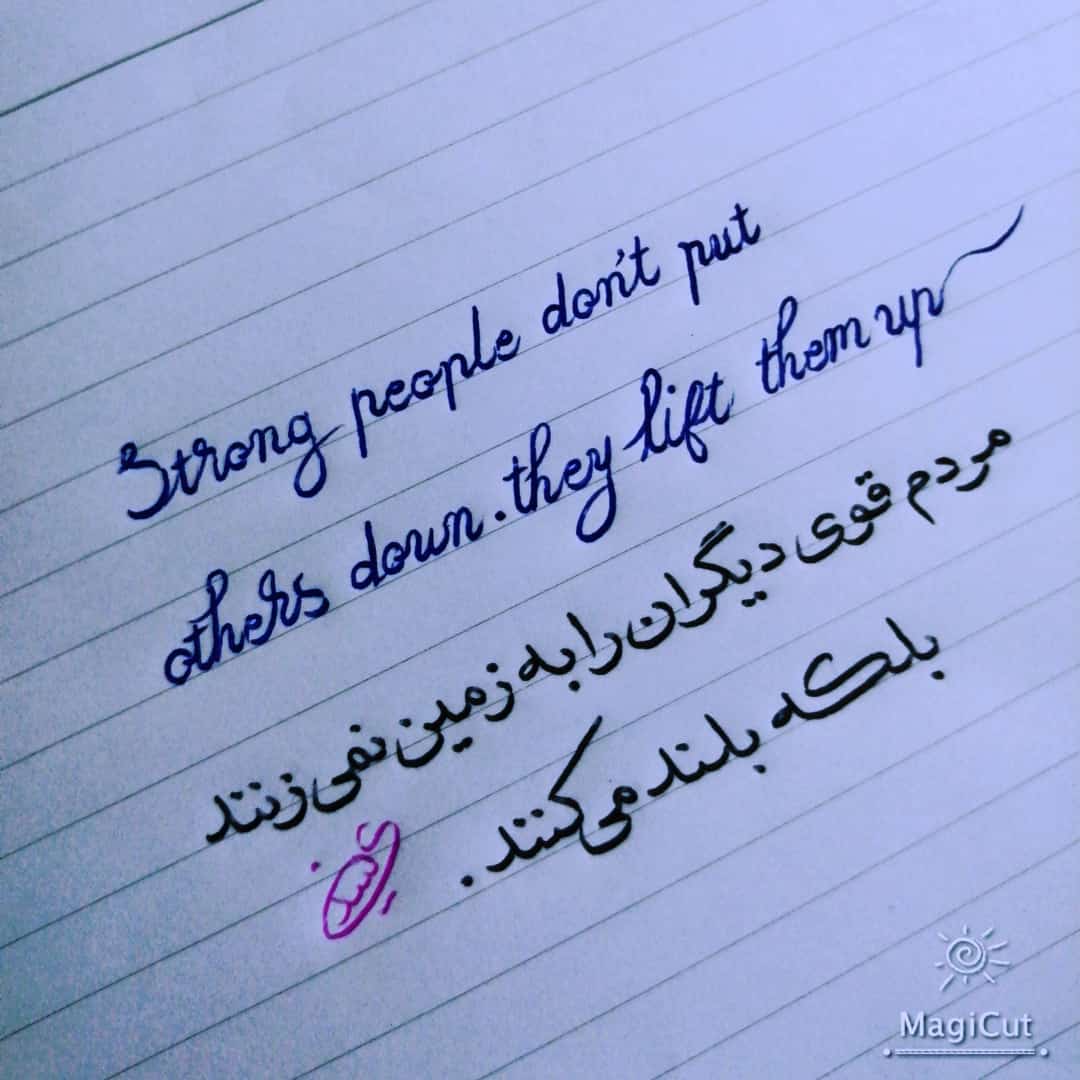 Strong people don't put
others down. they lift them up
مردم قوی دیگران را به زمین نمی زنند
بلکه بلند می کنند.
MagiCut